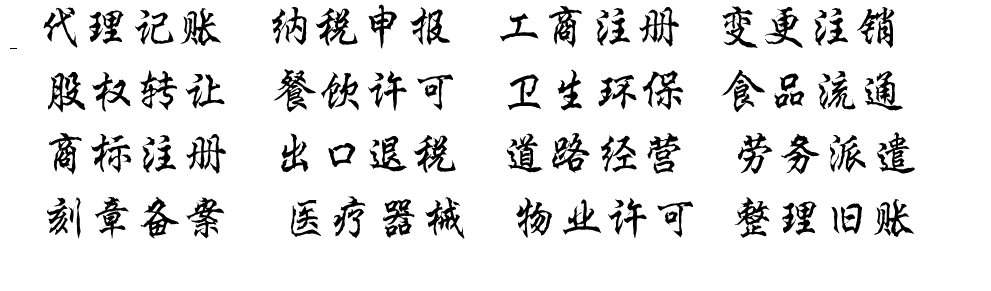 代理记账 纳税申报 工商注册 变更注销
股权转让 餐饮许可 卫生环保 食品流通
商标注册 出口退税 道路经营 劳务派遣
刻章备案 医疗器械 物业许可 整理旧账